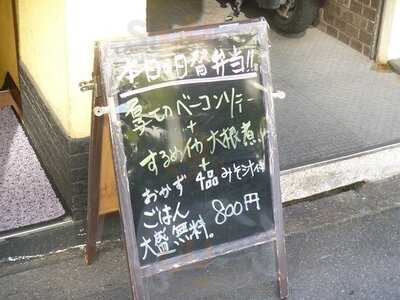 本日の日替弁当!!
厚切ベーコンソテー
+
するめイカ大根煮
+
おかず4品みそ汁付
ごはん
大盛無料。800円